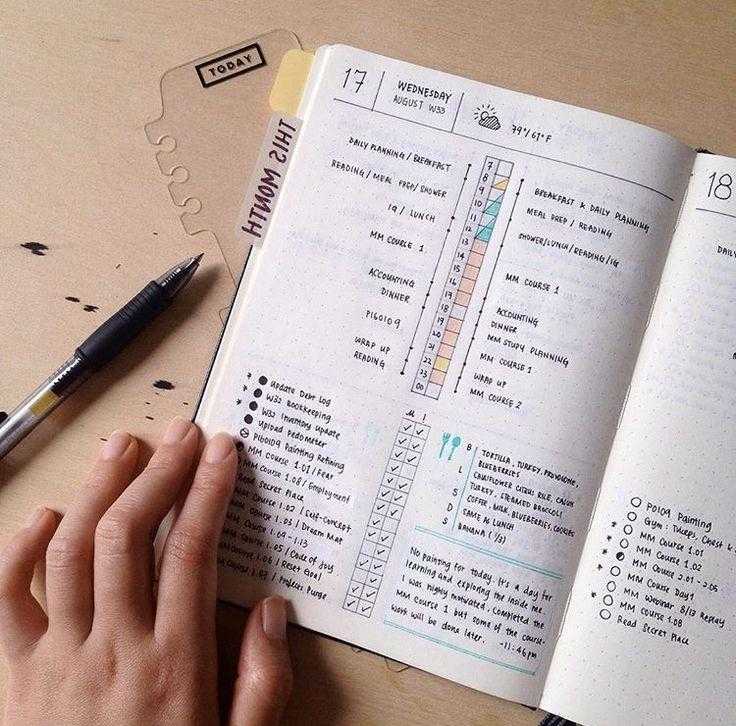 TODAY
THIS MONTH
17
WEDNESDAY
AUGUST W33
79°/61°F
DAILY PLANNING / BREAKFAST
READING / MEAL PREP / SHOWER
IG / LUNCH
MM COURSE 1
ACCOUNTING
DINNER
P160109
WRAP UP
READING
7
8
9
10
11
12
13
14
15
16
17
18
19
20
21
22
23
00
BREAKFAST & DAILY PLANNING
MEAL PREP / READING
SHOWER/LUNCH/READING/IG
MM COURSE 1
ACCOUNTING
DINNER
MM STUDY PLANNING
MM COURSE 1
WRAP UP
MM COURSE 2
Update Debt Log
W32 Bookkeeping
W32 Inventory Update
Upload Pedometer
P160109 Painting Refining
MM Course 1.01 / Fear
MM Course 1.08 / Employment
Read Secret Place
MM Course 1.02 / Self-Concept
MM Course 1.03 / Dream Mat
MM Course 1.09 - 1.13
MM Course 1.05 / Code of Joy
MM Course 1.06 / Reset Goal
MM Course 1.07 / Projects Purge
B TORTILLA, TURKEY, PROVOLONE,
BLUEBERRIES
L CAULIFLOWER CITRUS RICE, CAJUN
TURKEY, STEAMED BROCCOLI
S COFFEE, MILK, BLUEBERRIES, COOKIES
D SAME AS LUNCH
S BANANA (1/2)
No painting for today. It's a day for
learning and exploring the inside me.
I was highly motivated. Completed the
MM Course 1 but some of the course-
work will be done later. -11:46pm
18
DAILY
P0109 Painting
Gym: Triceps, Chest &
MM Course 1.01
MM Course 1.02
MM Course 2.01 - 2.05
MM Course Day 1
MM Webinar 8/13 Replay
MM Course 1.08
Read Secret Place